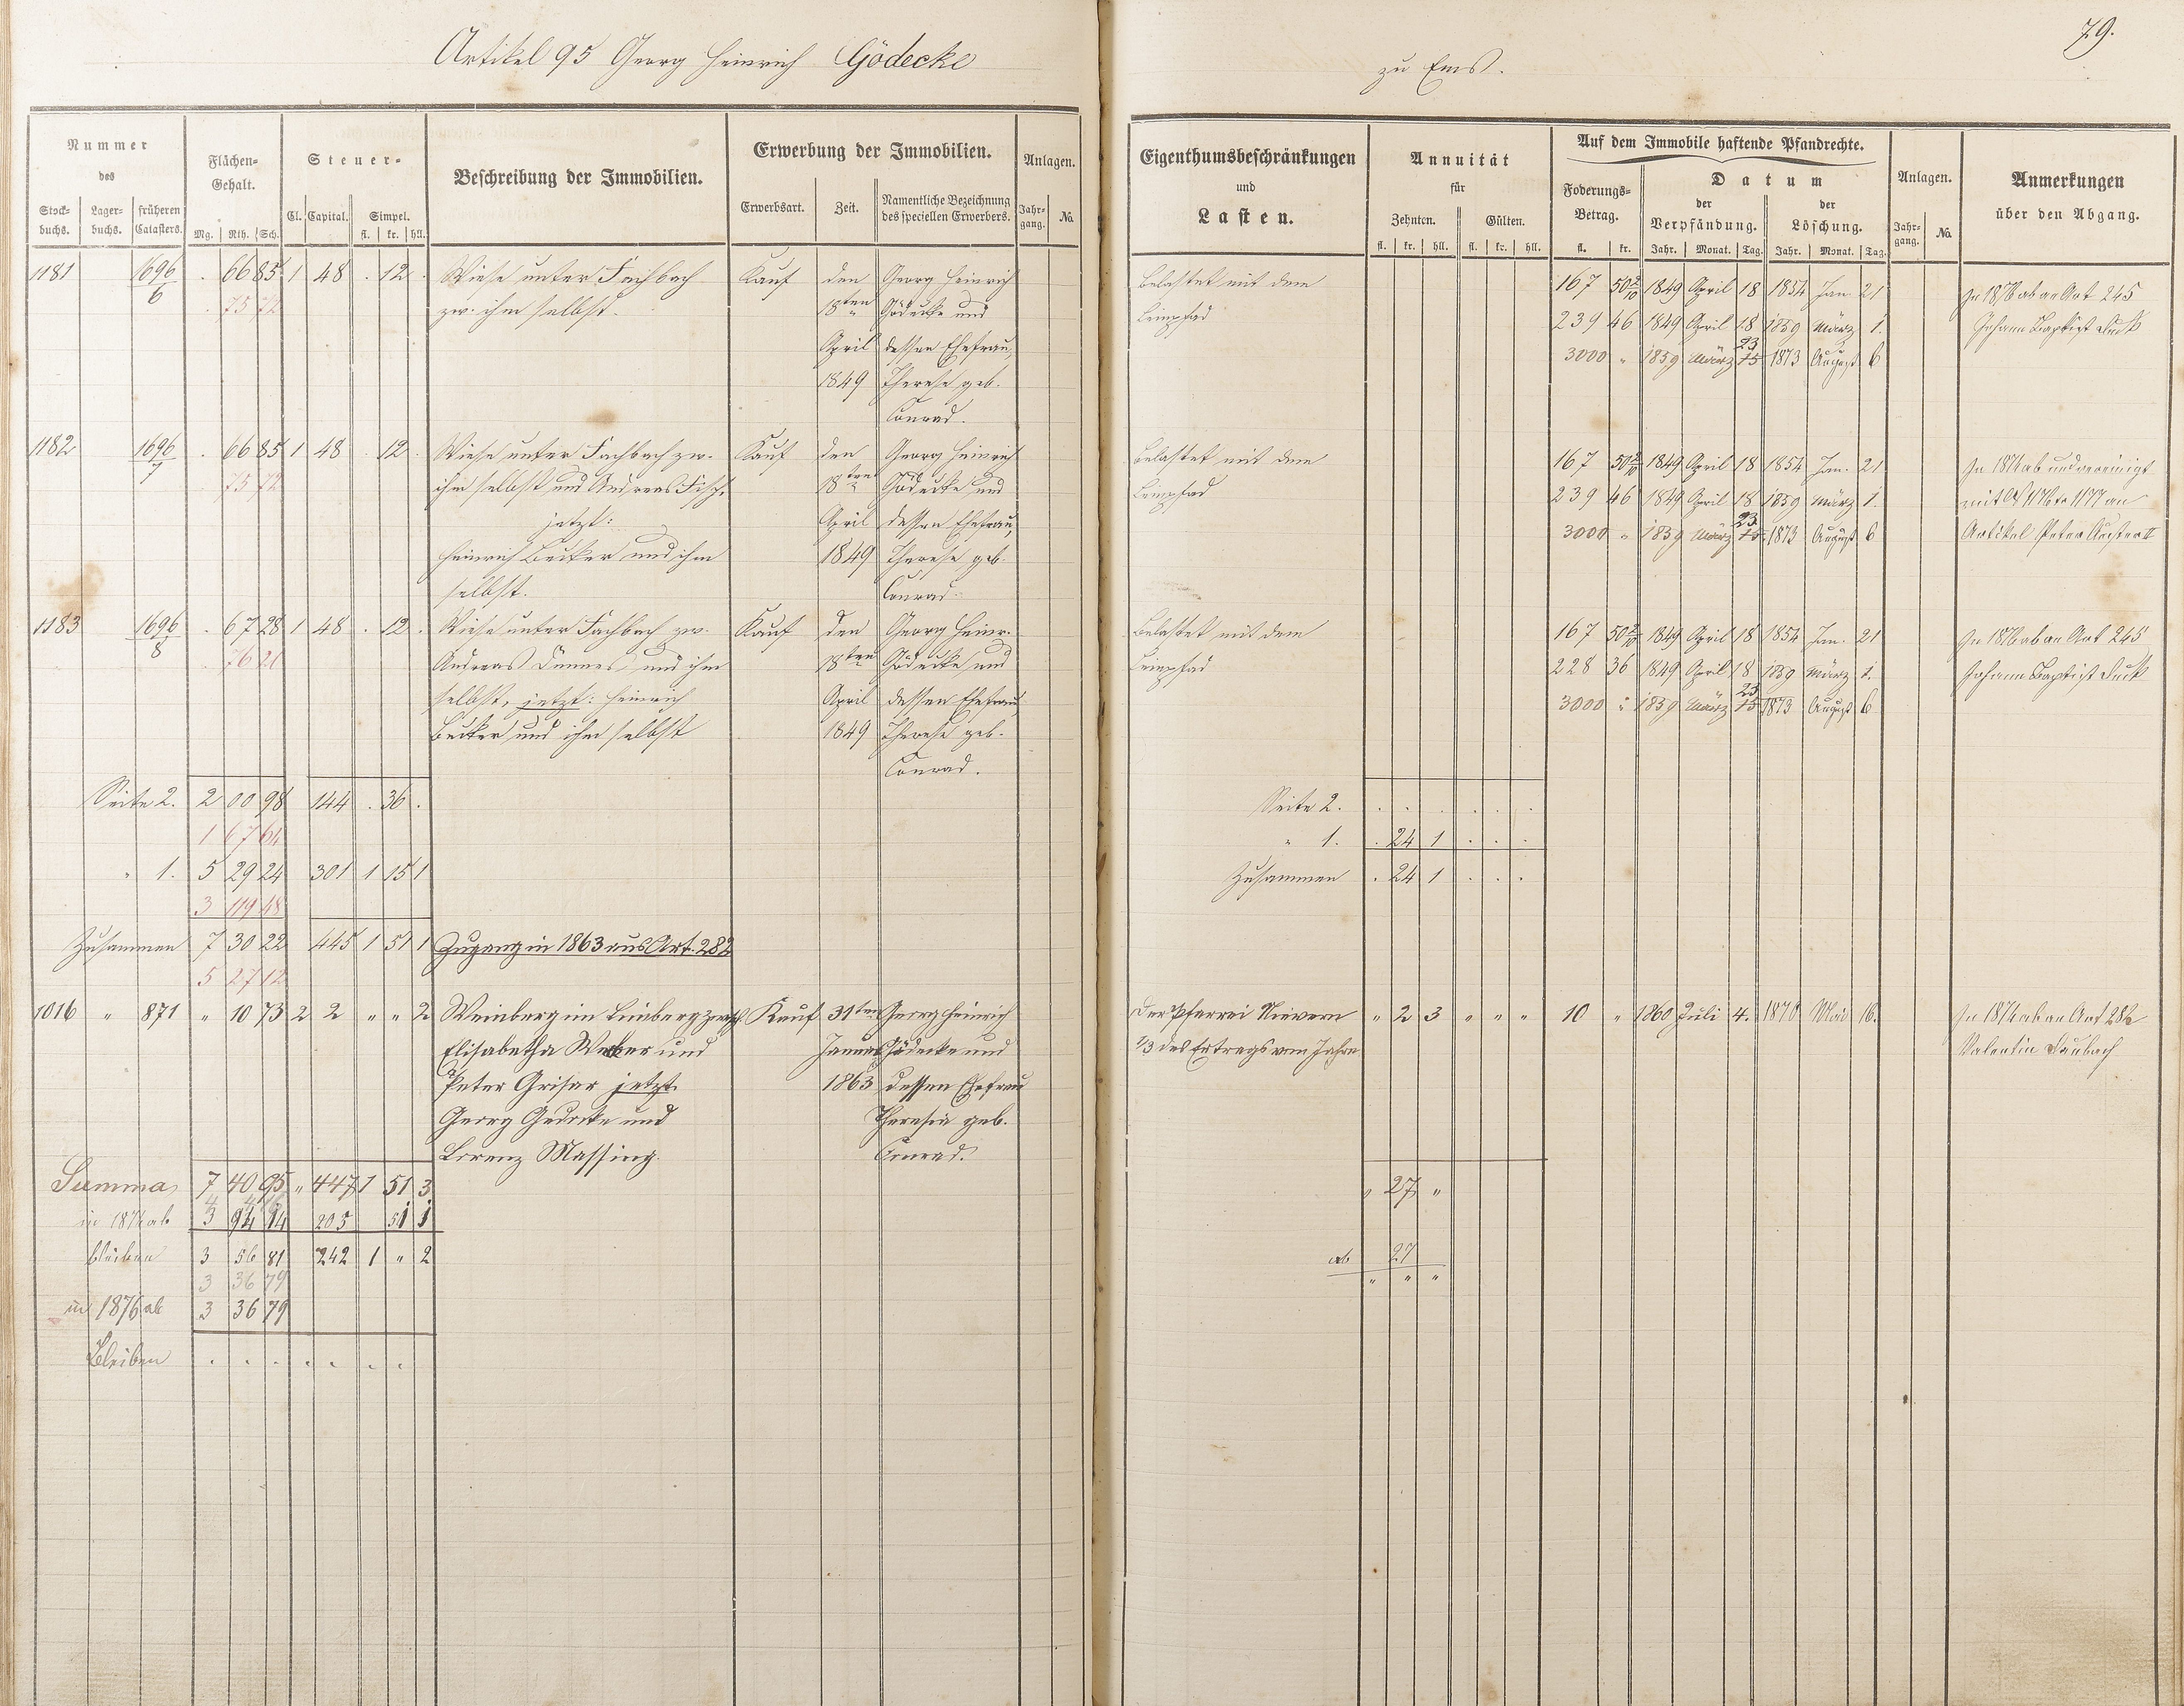 Artikel 95 Georg Heinrich Gödecke
zu Ems.
79.
Nummer des
Stockbuchs. Lagerbuchs. früheren Catasters.
Flächen-Gehalt.
Mg. Rth. Sch.
Steuer-
Cl. Capital. Simpel.
fl. kr. hll.
Beschreibung der Immobilien.
Erwerbung der Immobilien.
Erwerbsart. Zeit. Namentliche Bezeichnung des speciellen Erwerbers.
Anlagen.
Jahrgang. No.
Eigenthumsbeschränkungen
und
Lasten.
Annuität
für
Zehnten. Gülten.
fl. kr. hll. fl. kr. hll.
Auf dem Immobile haftende Pfandrechte.
Foderungs-Betrag.
fl. kr.
Datum
der Verpfändung. der Löschung.
Jahr. Monat. Tag. Jahr. Monat. Tag.
Anlagen.
Jahrgang. No.
Anmerkungen
über den Abgang.
1181 1696/6 . 66 85 1 48 . 12 . Wiese unter Fachbach Kauf den Georg Heinrich
. 75 72 zw. ihm selbst. 18ten Gödecke und
April dessen Ehefrau,
1849 Therese geb.
Conrad.
Belastet mit dem 167 50 2/10 1849 April 18 1854 Jan. 21 In 1876 ab an Art 245
Leinpfad 239 46 1849 April 18 1859 März 1. Johann Baptist
3000 " 1859 März 15 23 1873 August 6
1182 1696/7 . 66 85 1 48 . 12 . Wiese unter Fachbach zw. Kauf den Georg Heinrich
75 72 ihm selbst und Andreas 18ten Gödecke und
jetzt: April dessen Ehefrau,
Heinrich Becker und ihm 1849 Therese geb.
selbst. Conrad.
Belastet mit dem 167 50 2/10 1849 April 18 1854 Jan. 21 In 1874 ab und vereinigt
Leinpfad 239 46 1849 April 18 1859 März 1. mit 1176 1177 an
3000 " 1859 März 15 23 1873 August 6 Artikel Peter
1183 1696/8 . 67 28 1 48 . 12 . Wiese unter Fachbach zw. Kauf den Georg Heinr.
76 21 Andreas und ihm 18ten Gödecke und
selbst, jetzt: Heinrich April dessen Ehefrau,
Becker und ihm selbst 1849 Therese geb.
Conrad.
Belastet mit dem 167 50 2/10 1849 April 18 1854 Jan. 21 In 1876 ab an Art 245
Leinpfad 228 36 1849 April 18 1859 März 1. Johann Baptist
3000 " 1859 März 15 23 1873 August 6
Seite 2. 2 00 98 144 . 36 .
1 67 64
" 1. 5 29 24 301 1 15 1
3 119 48
Zusammen 7 30 22 445 1 51 1 Zugang in 1863 aus Art. 282
5 27 12
Seite 2. . . . . . .
" 1. . 24 1 . . .
Zusammen . 24 1 . . .
1016 " 871 " 10 73 2 2 " " 2 Weinberg im Limberg zwisch. Kauf 31ten Georg Heinrich
Elisabetha Weber und Januar Gödecke und
Peter Grisar jetzt 1863 dessen Ehefrau
Georg Gedecke und Theresia geb.
Lorenz Massing. Conrad.
Der Pfarrei Nievern " 2 3 " " " 10 " 1860 Juli 4. 1870 Mai 16. In 1874 ab an Art 282
1/3 des Ertrags vom Jahre Valentin Daubach
Summa 7 40 95 " 447 1 51 3
in 1874 ab 3 94 14 205 51 1
bleiben 3 56 81 242 1 " 2
3 36 79
in 1876 ab 3 36 79
Bleiben . . . . . . .
" 27 "
ab 27
" " "